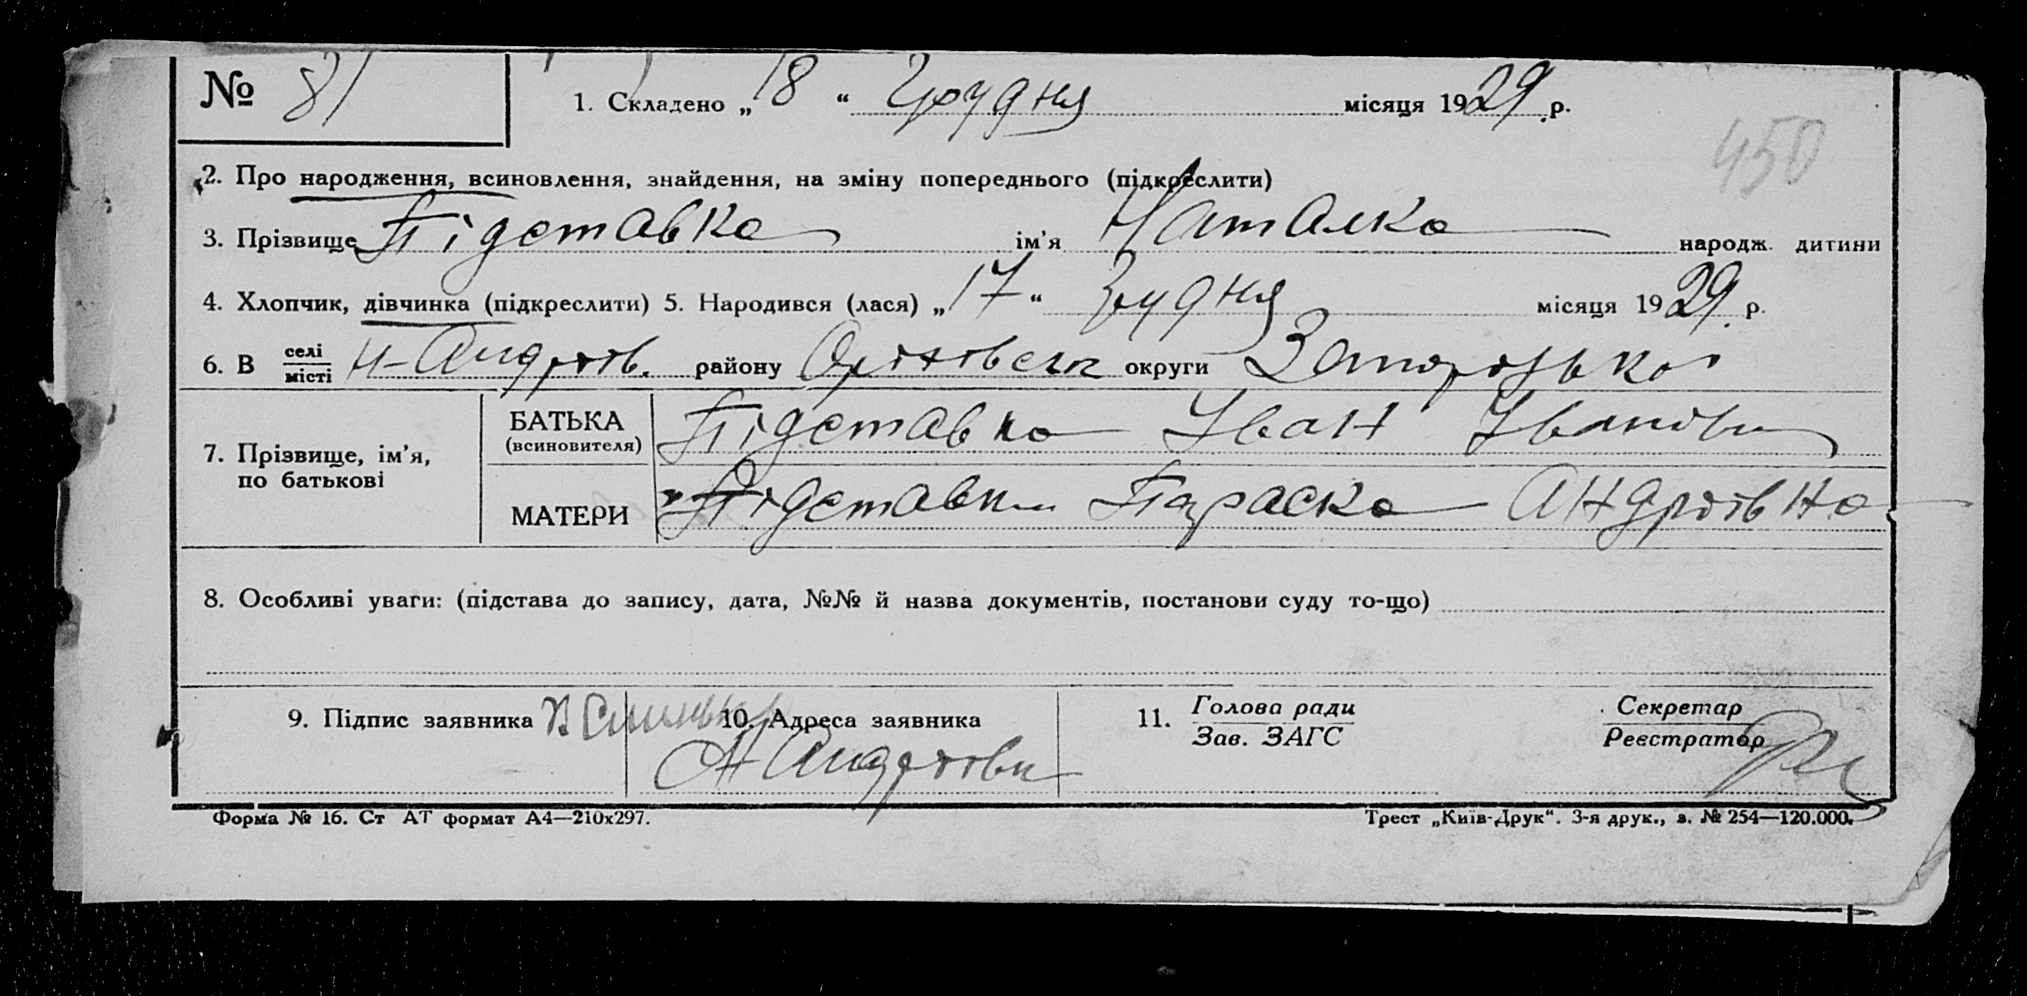 № 81 1. Складено „18“ Грудня місяця 1929 р.
450
2. Про народження, всиновлення, знайдення, на зміну попереднього (підкреслити)
3. Прізвище Підставка ім'я Наталка народж. дитини
4. Хлопчик, дівчинка (підкреслити) 5. Народився (лася) „17“ Грудня місяця 1929 р.
6. В селі місті Н-Андрот. району Оріховськ округи Запорізької
7. Прізвище, ім'я, по батькові
БАТЬКА (всиновителя) Підставка Іван Іванович
МАТЕРИ Підставка Параска Андріївна
8. Особливі уваги: (підстава до запису, дата, №№ й назва документів, постанови суду то-що)
9. Підпис заявника 10. Адреса заявника 11. Голова ради Секретар
Зав. ЗАГС Реєстратор
Форма № 16. Ст АТ формат А4—210x297. Трест „Київ-Друк“. 3-я друк., з. № 254—120.000.